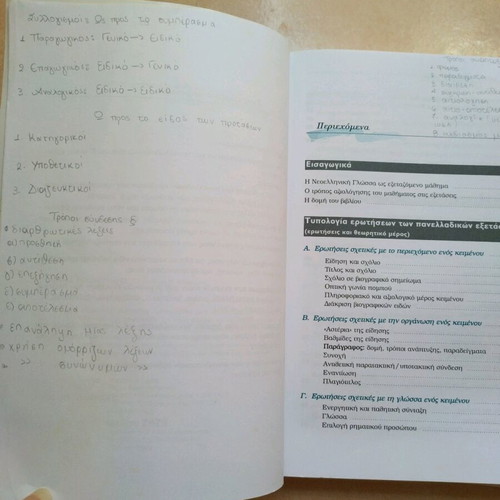 Συλλογισμοί: Ως προς το συμπέρασμα
1. Παραγωγικοί: Γενικό → Ειδικό
2. Επαγωγικοί: Ειδικό → Γενικό
3. Αναλογικοί: Ειδικό → Ειδικό
Ως προς το είδος των προτάσεων
1. Κατηγορικοί
2. Υποθετικοί
3. Διαζευκτικοί
Τρόποι σύνδεσης §
• διαρθρωτικές λέξεις
α) προσθήκη
β) αντίθεση
δ) επεξήγηση
ε) συμπέρασμα
ζ) αποτέλεσμα
• επανάληψη μιας λέξης
• χρήση ομόρριζων λέξεων
• >> συνωνύμων >>
Περιεχόμενα
Εισαγωγικά
Η Νεοελληνική Γλώσσα ως εξεταζόμενο μάθημα
Ο τρόπος αξιολόγησης του μαθήματος στις εξετάσεις
Η δομή του βιβλίου
Τυπολογία ερωτήσεων των πανελλαδικών εξετάσ
(ερωτήσεις και θεωρητικό μέρος)
Α. Ερωτήσεις σχετικές με το περιεχόμενο ενός κειμένου
Είδηση και σχόλιο
Τίτλος και σχόλιο
Σχόλιο σε βιογραφικό σημείωμα
Οπτική γωνία πομπού
Πληροφοριακό και αξιολογικό μέρος κειμένου
Διάκριση βιογραφικών ειδών
Β. Ερωτήσεις σχετικές με την οργάνωση ενός κειμένου
«Λογική» της είδησης
Βαθμίδες της είδησης
Παράγραφος: δομή, τρόποι ανάπτυξης, παραδείγματα
Συνοχή
Αντιθετική παρατακτική / υποτακτική σύνδεση
Εναντίωση
Πλαγιότιτλος
Γ. Ερωτήσεις σχετικές με τη γλώσσα ενός κειμένου
Ενεργητική και παθητική σύνταξη
Γλώσσα
Επιλογή ρηματικού προσώπου